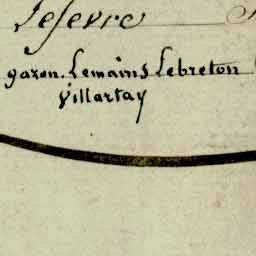 Lefevre
gazon. Lemains Lebreton
Villartay